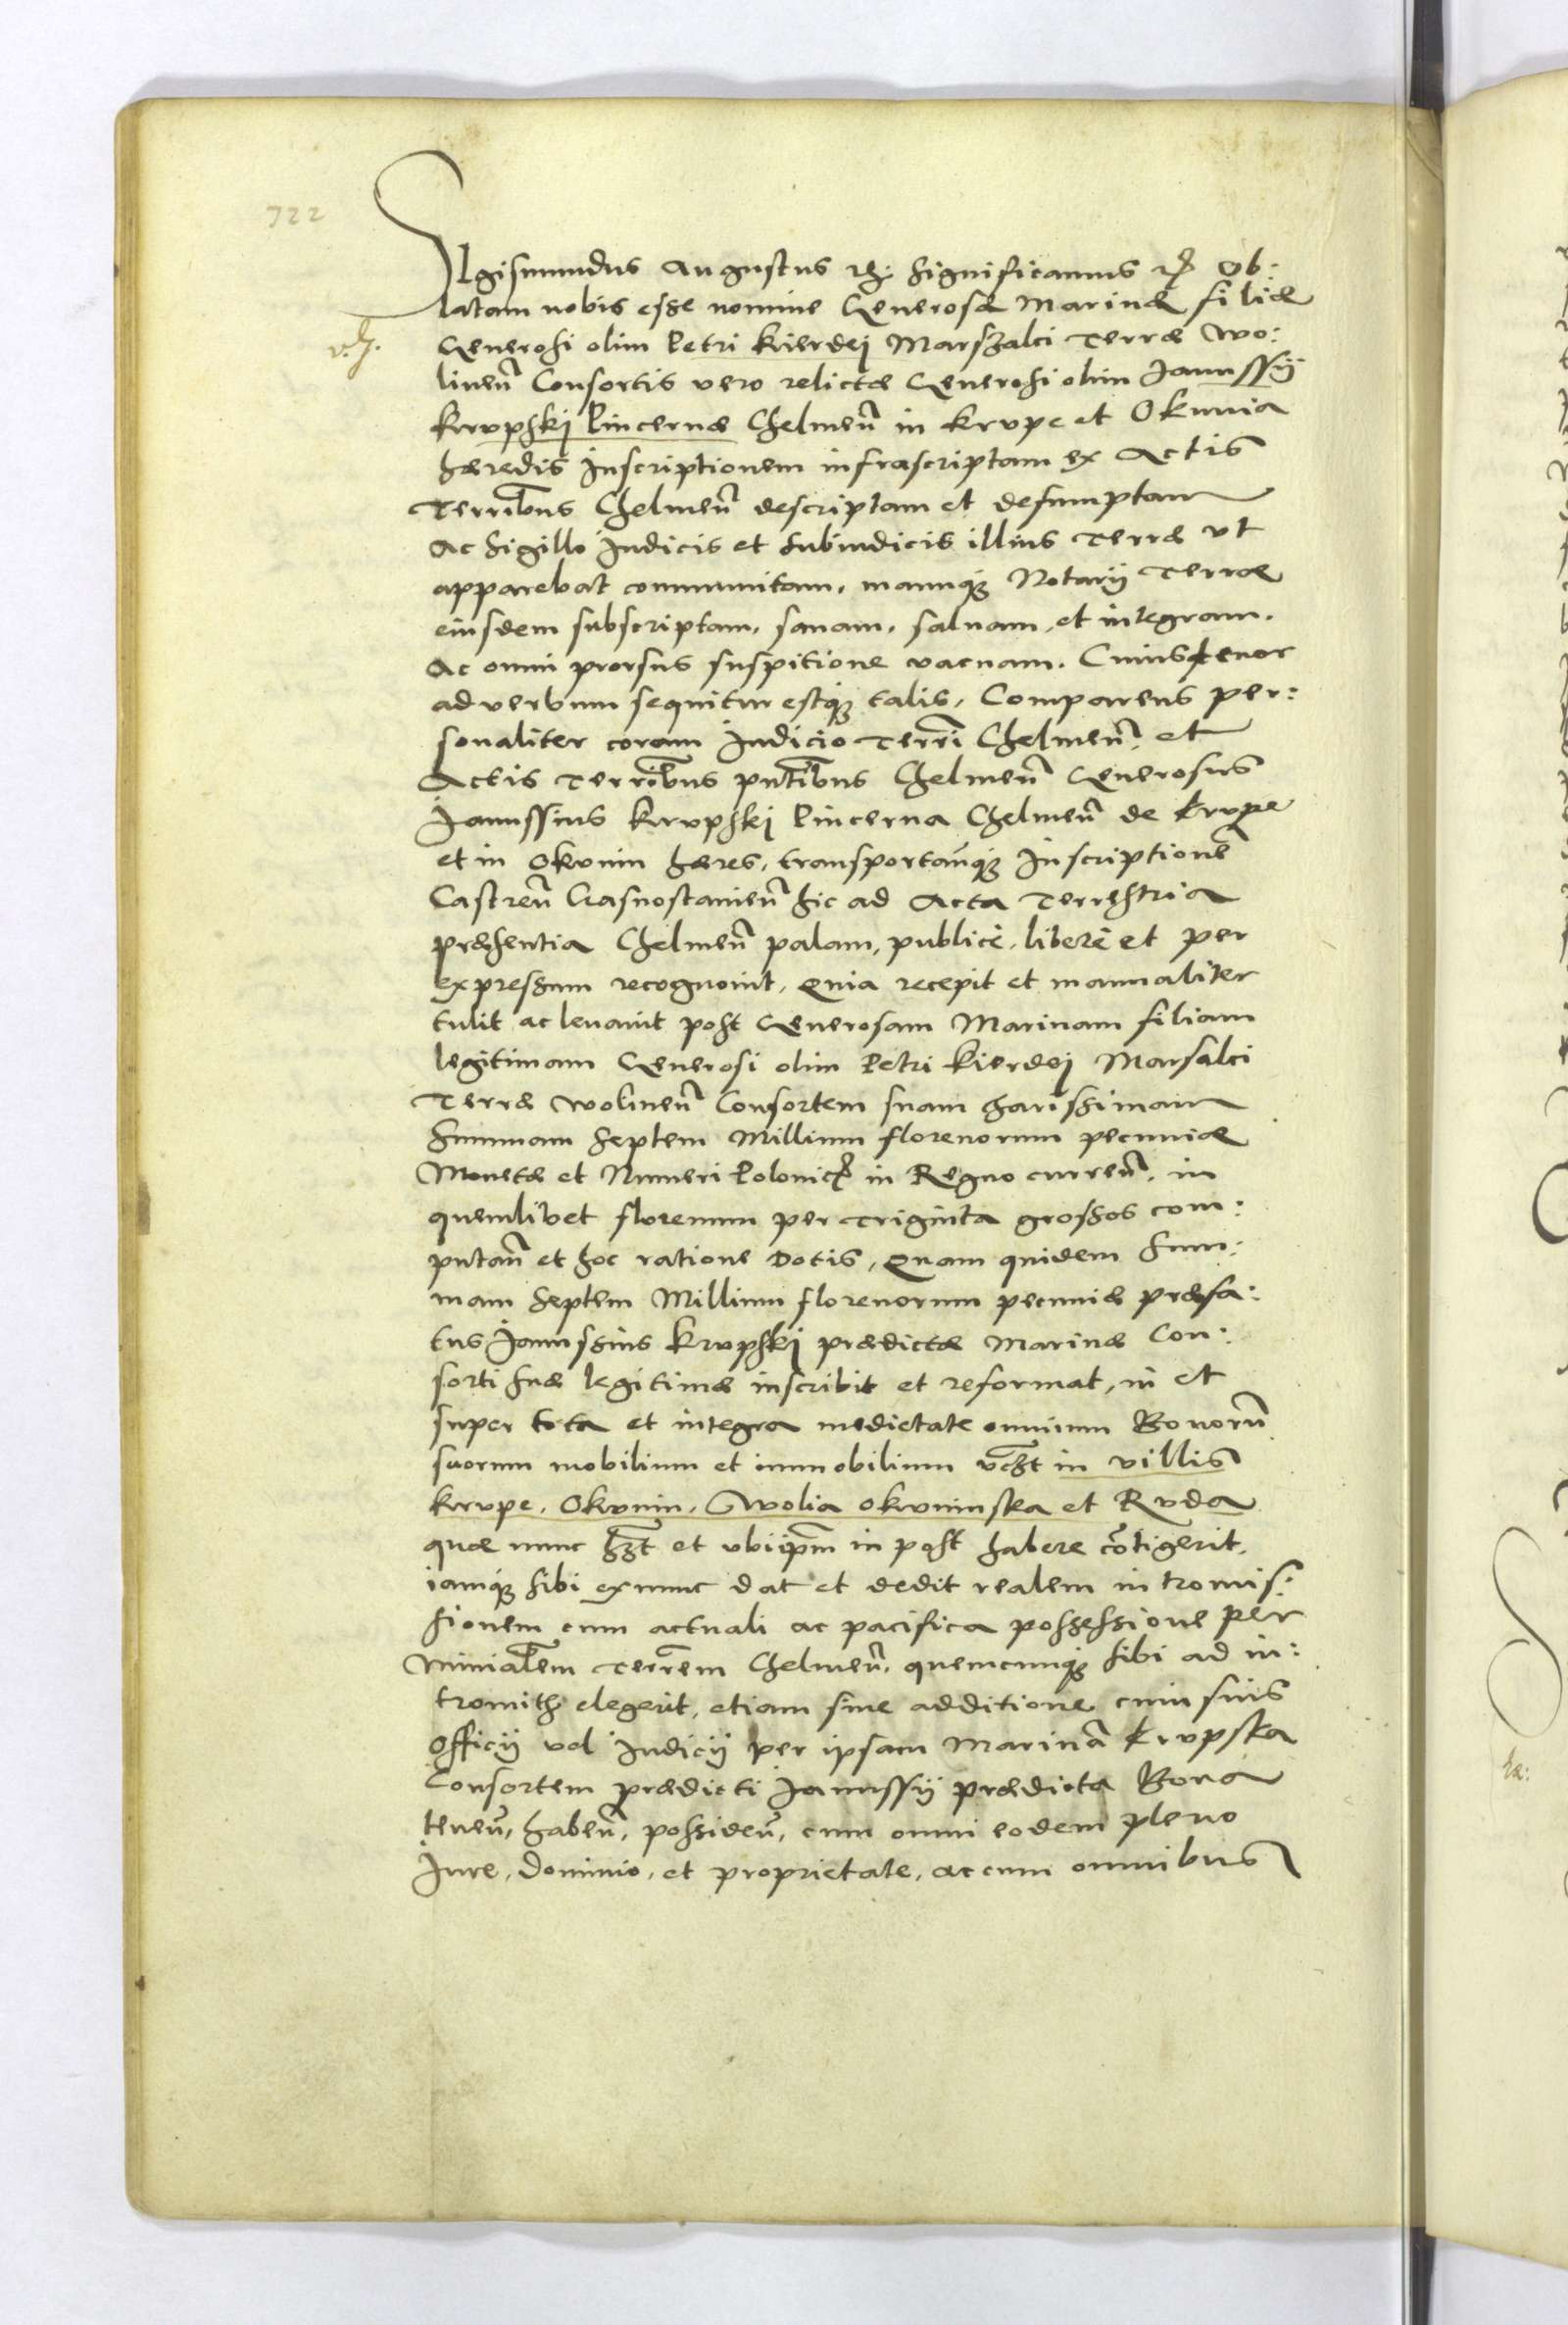 722
SIgismundus Augustus rex. Significamus etc Ob:
latam nobis esse nomine Generosæ Marinæ filiæ
Generosi olim Petri Kierdej Marszalci Terræ Wo:
linen̄ Consortis vero relictæ Generosi olim Janussÿ
Krupskj Pincernæ Chelmen̄ in Krvpe et Okunia
hæredis Inscriptionem infrascriptam ex Actis
Terrib̄us Chelmen̄ descriptam et desumptam
Ac Sigillo Judicis et Subiudicis illius Terræ vt
apparebat communitam, manuq̢ Notarÿ Terræ
eiusdem subscriptam, sanam, saluam, et integram.
Ac omni prorsus suspitione vacuam. Cuius tenor
ad verbum sequitur estq̢ talis, Comparens per:
sonaliter coram Judicio Terrī Chelmen̄, et
Actis Terrib̄us pn̄tibus Chelmen̄ Generosus
Janussius Krvpskj Pincerna Chelmen̄ de Krvpe
et in Okvnin hæres, transportan̄q̢ Inscriptionē
Castren̄ Crasnostauien̄ hic ad Acta Terrestria
præsentia Chelmen̄ palam, publicè, liberè et per
expressum recognouit, Quia recepit et manualiter
tulit ac leuauit post Generosam Marinam filiam
legitimam Generosi olim Petri Kierdej Marsalci
Terræ Wolinen̄ Consortem suam charissimam
Summam Septem Millium florenorum pecuniæ
Monetæ et Numeri Polonic̄ in Regno curren̄, in
quemlibet florenum per Triginta grossos com:
putan̄ et hoc ratione Dotis, Quam quidem Sum:
mam Septem Millium florenorum pecuniæ præfa:
tus Janussius Krvpskj prædictæ Marinæ Con:
sorti suæ legitimæ inscribit et reformat, in et
super tota et integra medietate omnium Bonorū
suorum mobilium et immobilium vc̄zt in villis
Krvpe, Okvnin, Gwolia Okvninska et Rvda
quæ nunc hz̄t et vbi ip̄m in post habere cōtigerit,
iamq̢ sibi ex nunc dat et dedit realem intromis:
sionem cum actuali ac pacifica possessione per
Minialēm Terrēm Chelmen̄, quemcunq̢ sibi ad in:
tromitt̄ elegerit, etiam sine additione cuiusuis
Officÿ vel Judicÿ per ipsam Marinā Krvpska
Consortem prædicti Janussÿ prædicta Bona
tenen̄, haben̄, possiden̄, cum omni eodem pleno
Jure, Dominio, et proprietate, ac cum omnibus